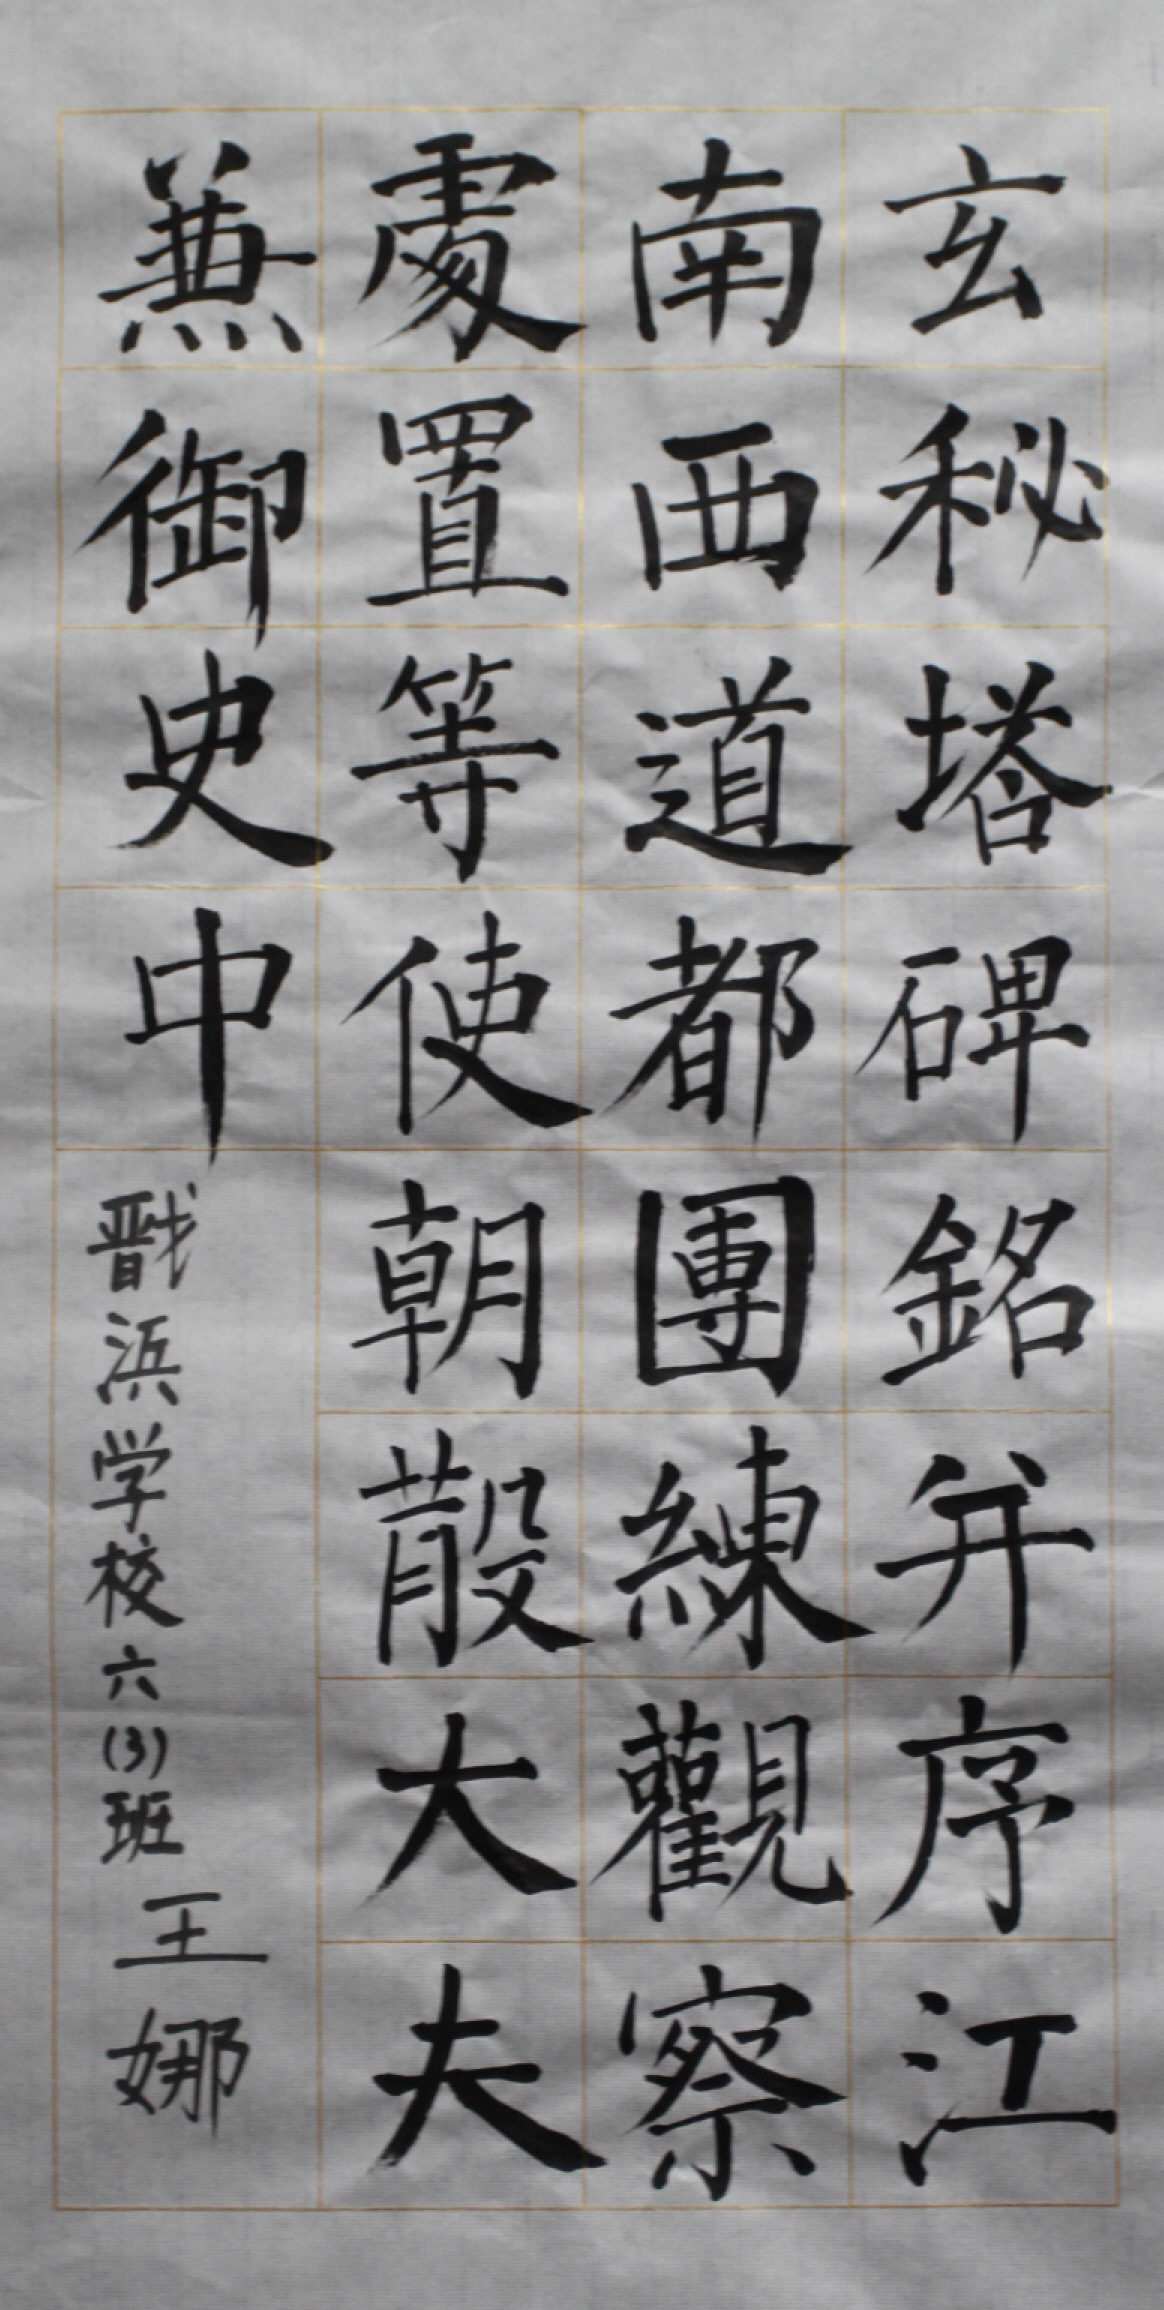 玄秘塔碑銘并序江
南西道都團練觀察
處置等使朝散大夫
兼御史中
戬浜学校六(3)班王娜